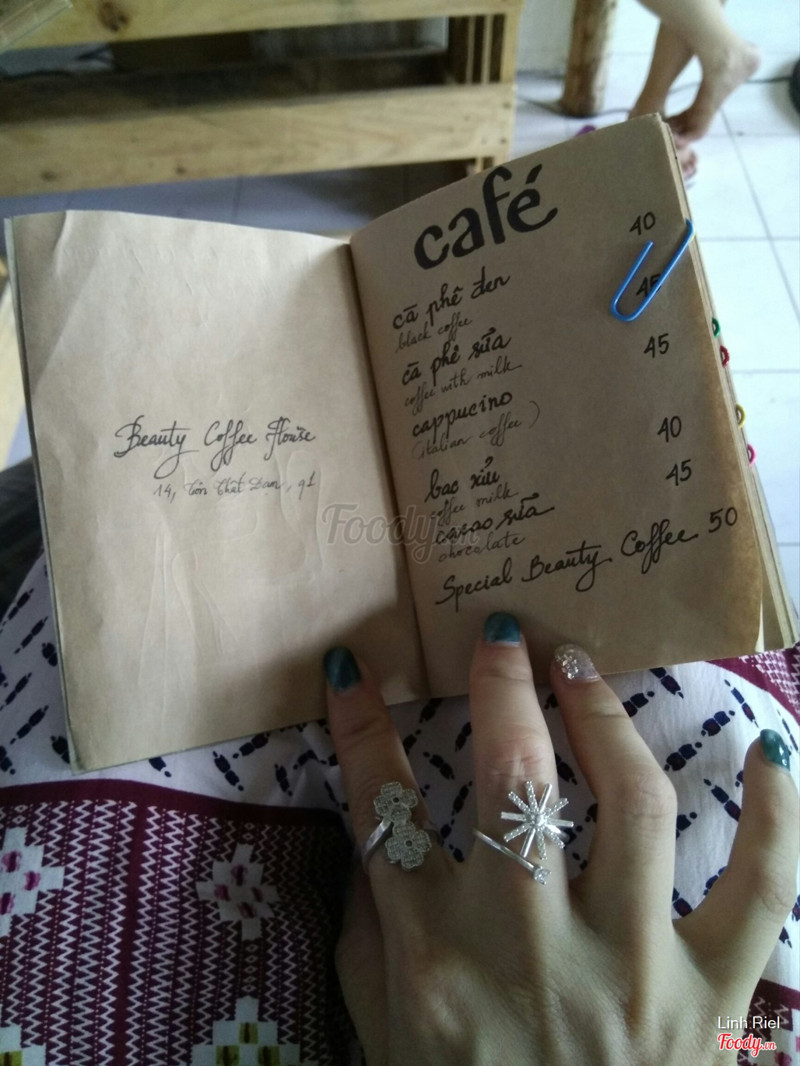 Beauty Coffee House
14, Tôn Thất Đạm, q1
café
cà phê đen 40
black coffee
cà phê sữa 45
coffee with milk
cappucino 45
(italian coffee)
bạc xỉu 40
coffee milk
cacao sữa 45
chocolate
Special Beauty Coffee 50
Foody.vn
Linh Riel
Foody.vn